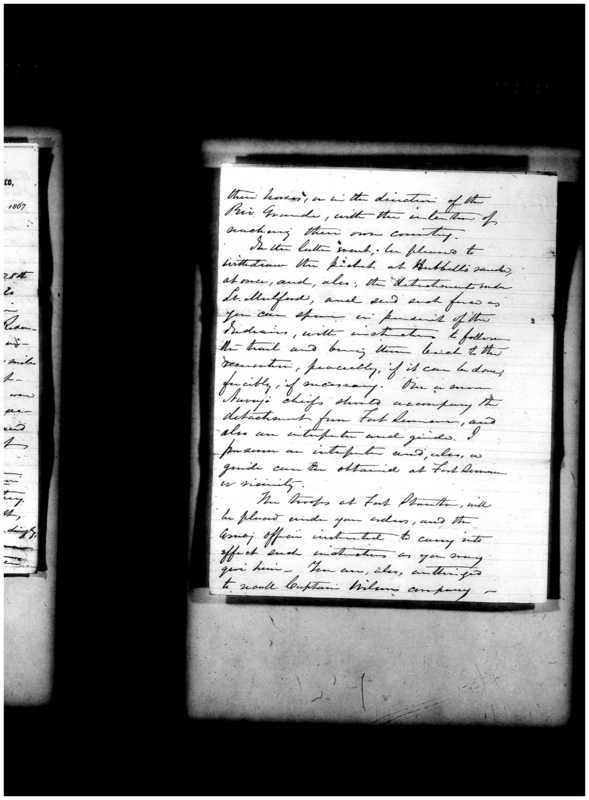 1867
28th
their homes, or in the direction of the
Rio Grande, with the intention of
reaching their own country.
In the latter event, be pleased to
withdraw the picket at Hubbell's ranch,
at once, and, also, the detachment under
Lt. Mulford, and send such force as
you can spare in pursuit of the
Indians, with instructions to follow
the trail and bring them back to the
reservation, peaceably, if it can be done,
forcibly, if necessary. One or more
Navajo chiefs should accompany the
detachment from Fort Sumner, and
also an interpreter and guide. I
presume an interpreter and, also, a
guide can be obtained at Fort Sumner
or vicinity.
The troops at Fort Stanton, will
be placed under your orders, and the
officer instructed to carry into
effect such instructions as you may
give him — You are, also, authorized
to recall Captain Wilson company —